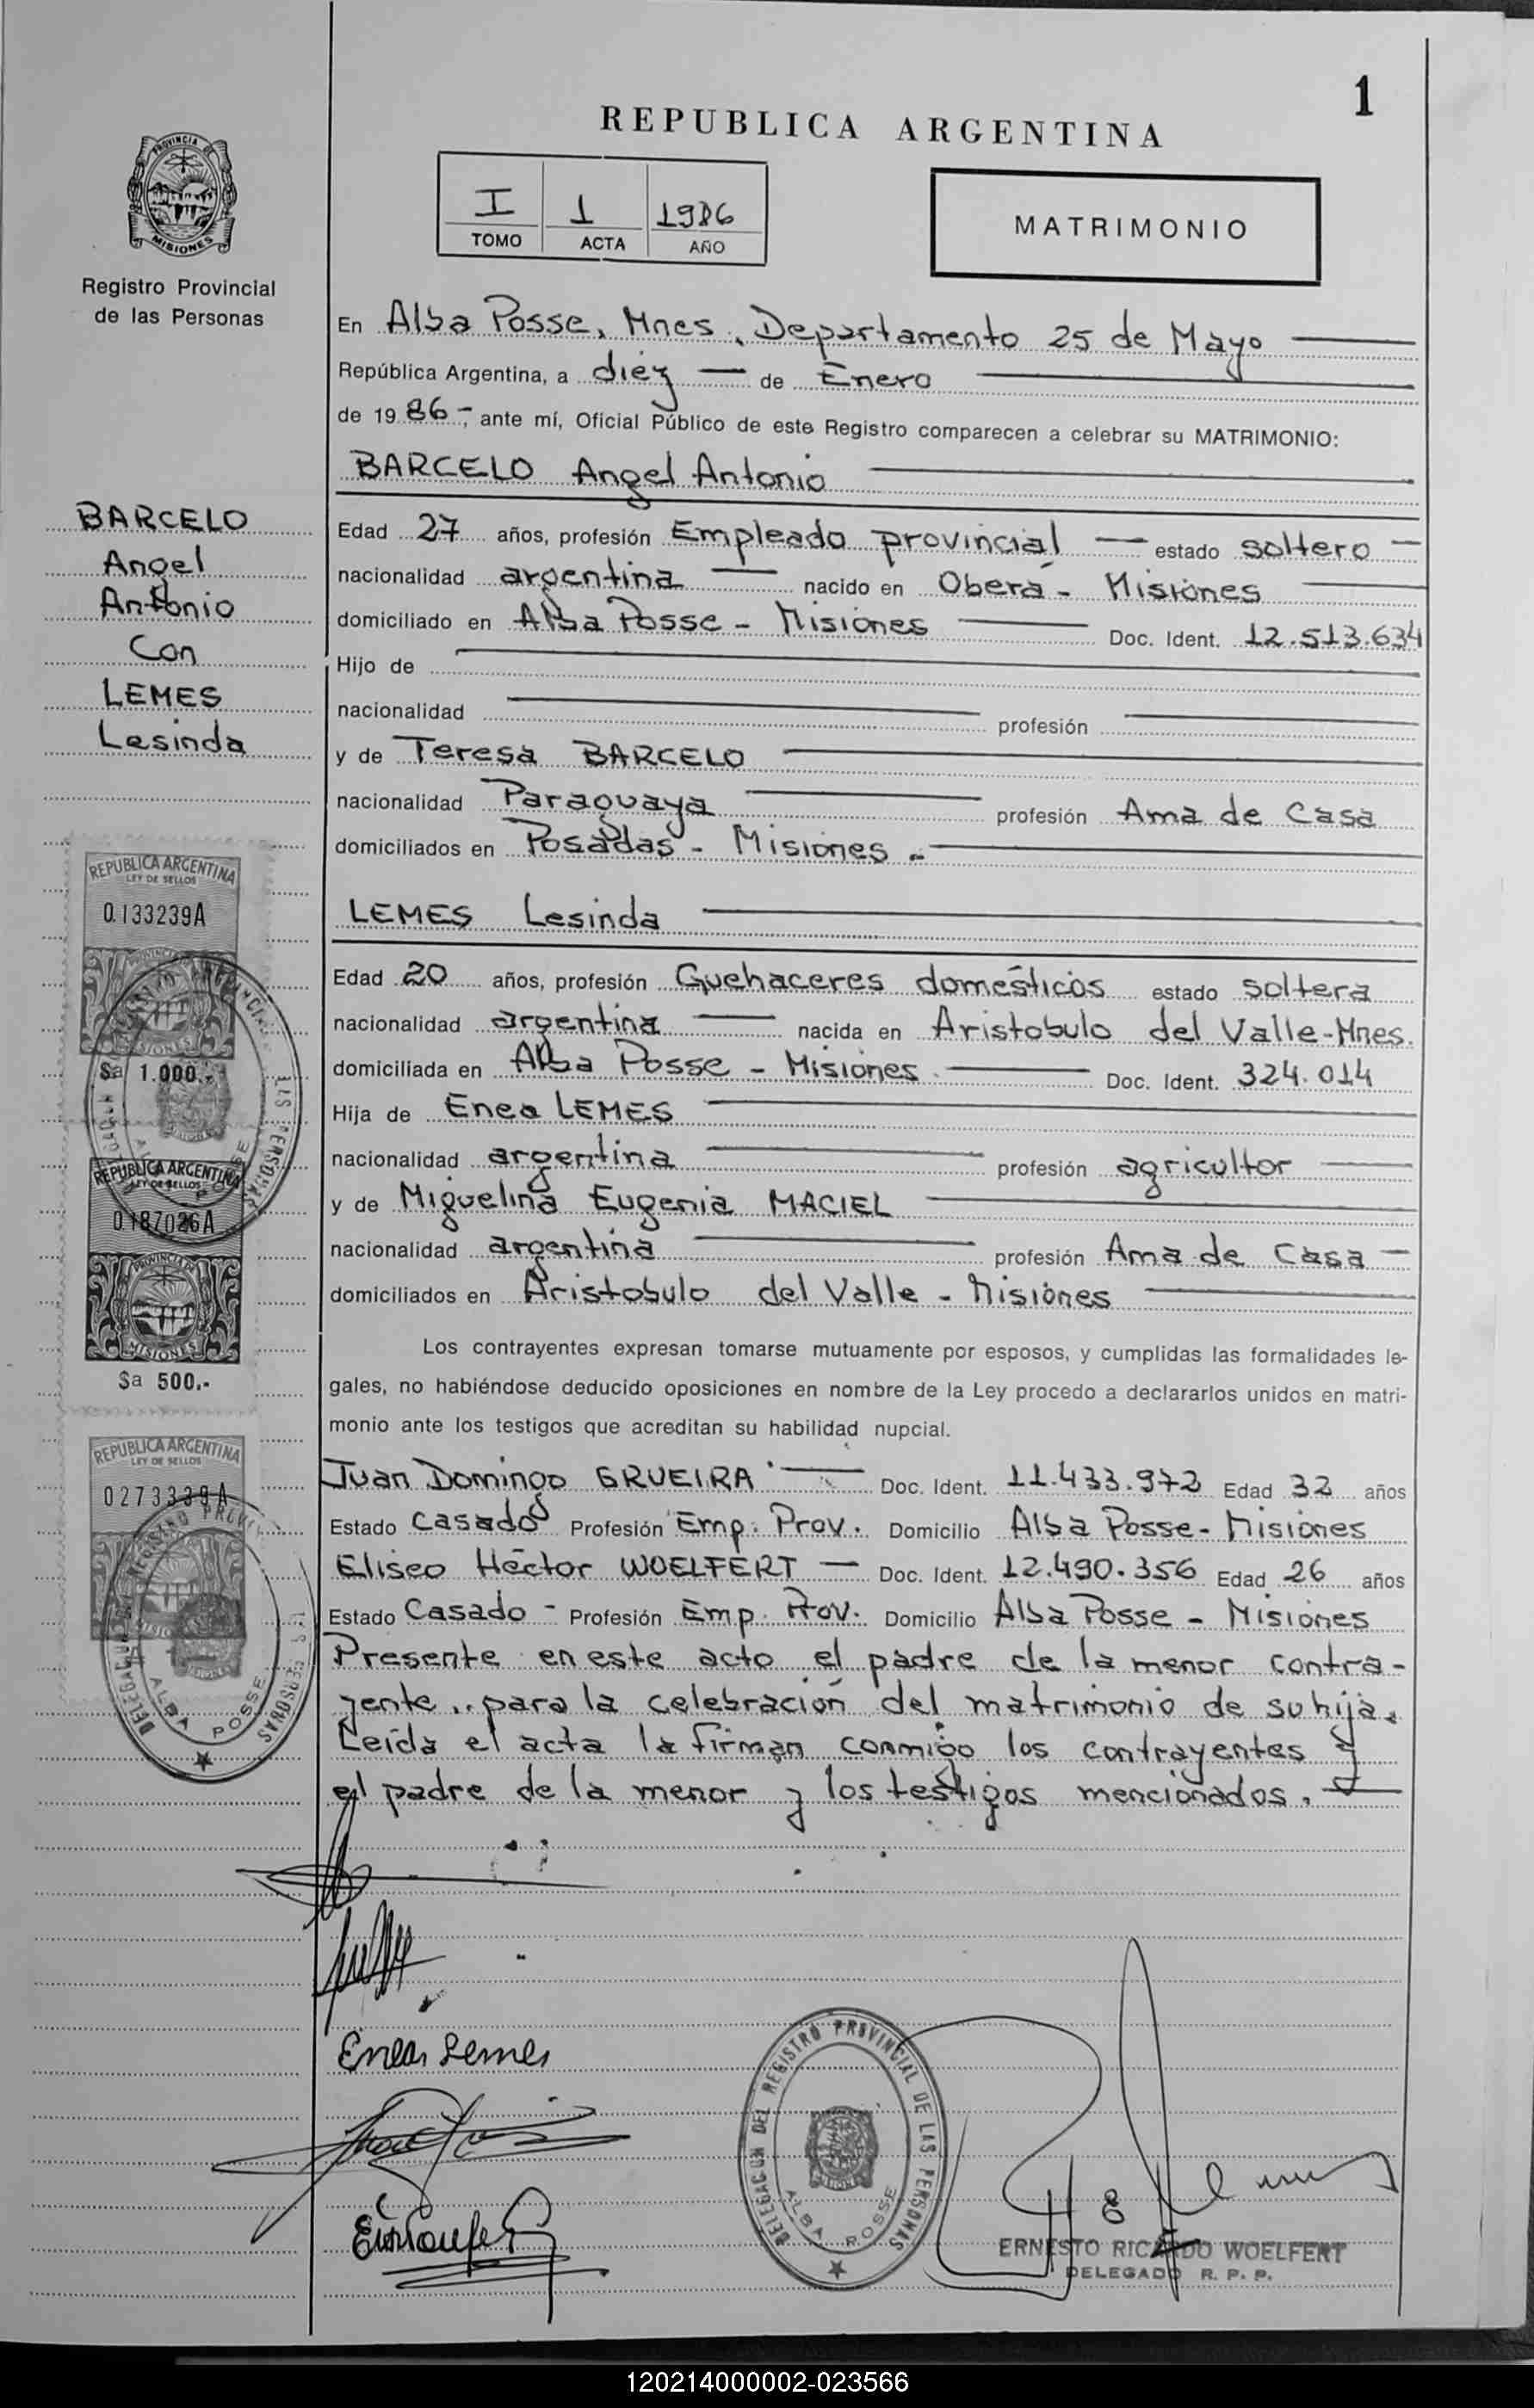 1
REPUBLICA ARGENTINA
PROVINCIA DE
MISIONES
Registro Provincial
de las Personas
I 1 1986
TOMO ACTA AÑO
MATRIMONIO
En Alba Posse, Mnes. Departamento 25 de Mayo
República Argentina, a diez de Enero
de 1986-, ante mí, Oficial Público de este Registro comparecen a celebrar su MATRIMONIO:
BARCELO Angel Antonio
BARCELO
Angel
Antonio
Con
LEMES
Lesinda
Edad 27 años, profesión Empleado provincial estado soltero
nacionalidad argentina nacido en Oberá - Misiones
domiciliado en Alba Posse - Misiones Doc. Ident. 12.513.634
Hijo de
nacionalidad profesión
y de Teresa BARCELO
nacionalidad Paraguaya profesión Ama de Casa
domiciliados en Posadas - Misiones -
LEMES Lesinda
Edad 20 años, profesión Quehaceres domésticos estado soltera
nacionalidad argentina nacida en Aristobulo del Valle-Mnes.
domiciliada en Alba Posse - Misiones Doc. Ident. 324.014
Hija de Enea LEMES
nacionalidad argentina profesión agricultor
y de Miguelina Eugenia MACIEL
nacionalidad argentina profesión Ama de Casa
domiciliados en Aristobulo del Valle - Misiones
Los contrayentes expresan tomarse mutuamente por esposos, y cumplidas las formalidades le-
gales, no habiéndose deducido oposiciones en nombre de la Ley procedo a declararlos unidos en matri-
monio ante los testigos que acreditan su habilidad nupcial.
Juan Domingo GRUEIRA Doc. Ident. 11.433.973 Edad 32 años
Estado Casado Profesión Emp. Prov. Domicilio Alba Posse - Misiones
Eliseo Héctor WOELFERT Doc. Ident. 12.490.356 Edad 26 años
Estado Casado - Profesión Emp. Prov. Domicilio Alba Posse - Misiones
Presente en este acto el padre de la menor contra-
yente para la celebración del matrimonio de su hija.
Leída el acta la firman conmigo los contrayentes y
el padre de la menor y los testigos mencionados.
REPUBLICA ARGENTINA
LEY DE SELLOS
0.133239A
$a 1.000.-
REPUBLICA ARGENTINA
LEY DE SELLOS
0.187026A
PROVINCIA DE
MISIONES
$a 500.-
REPUBLICA ARGENTINA
LEY DE SELLOS
0273339A
ALBA POSSE
Eneas Lemes
DELEGACION DEL REGISTRO PROVINCIAL DE LAS PERSONAS
ALBA POSSE
ERNESTO RICARDO WOELFERT
DELEGADO R. P. P.
120214000002-023566